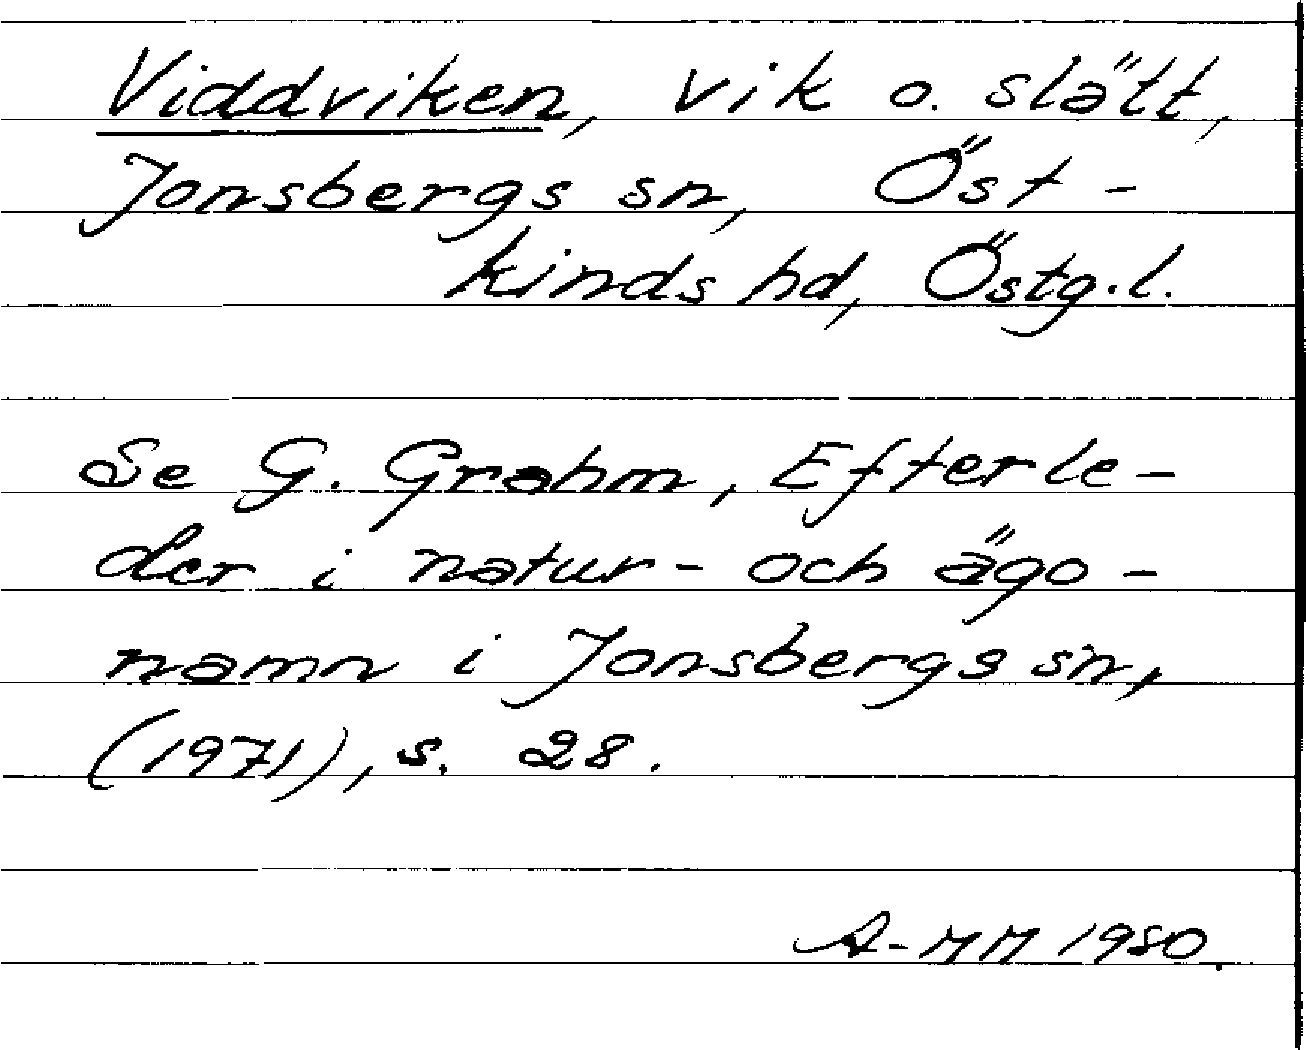 Viddviken, vik o. slätt,
Jonsbergs sn, Öst-
kinds hd, Östg.l.
Se G. Grahm, Efterle-
der i natur- och ägo-
namn i Jonsbergs sn,
(1971), s. 28.
A-MM 1980.